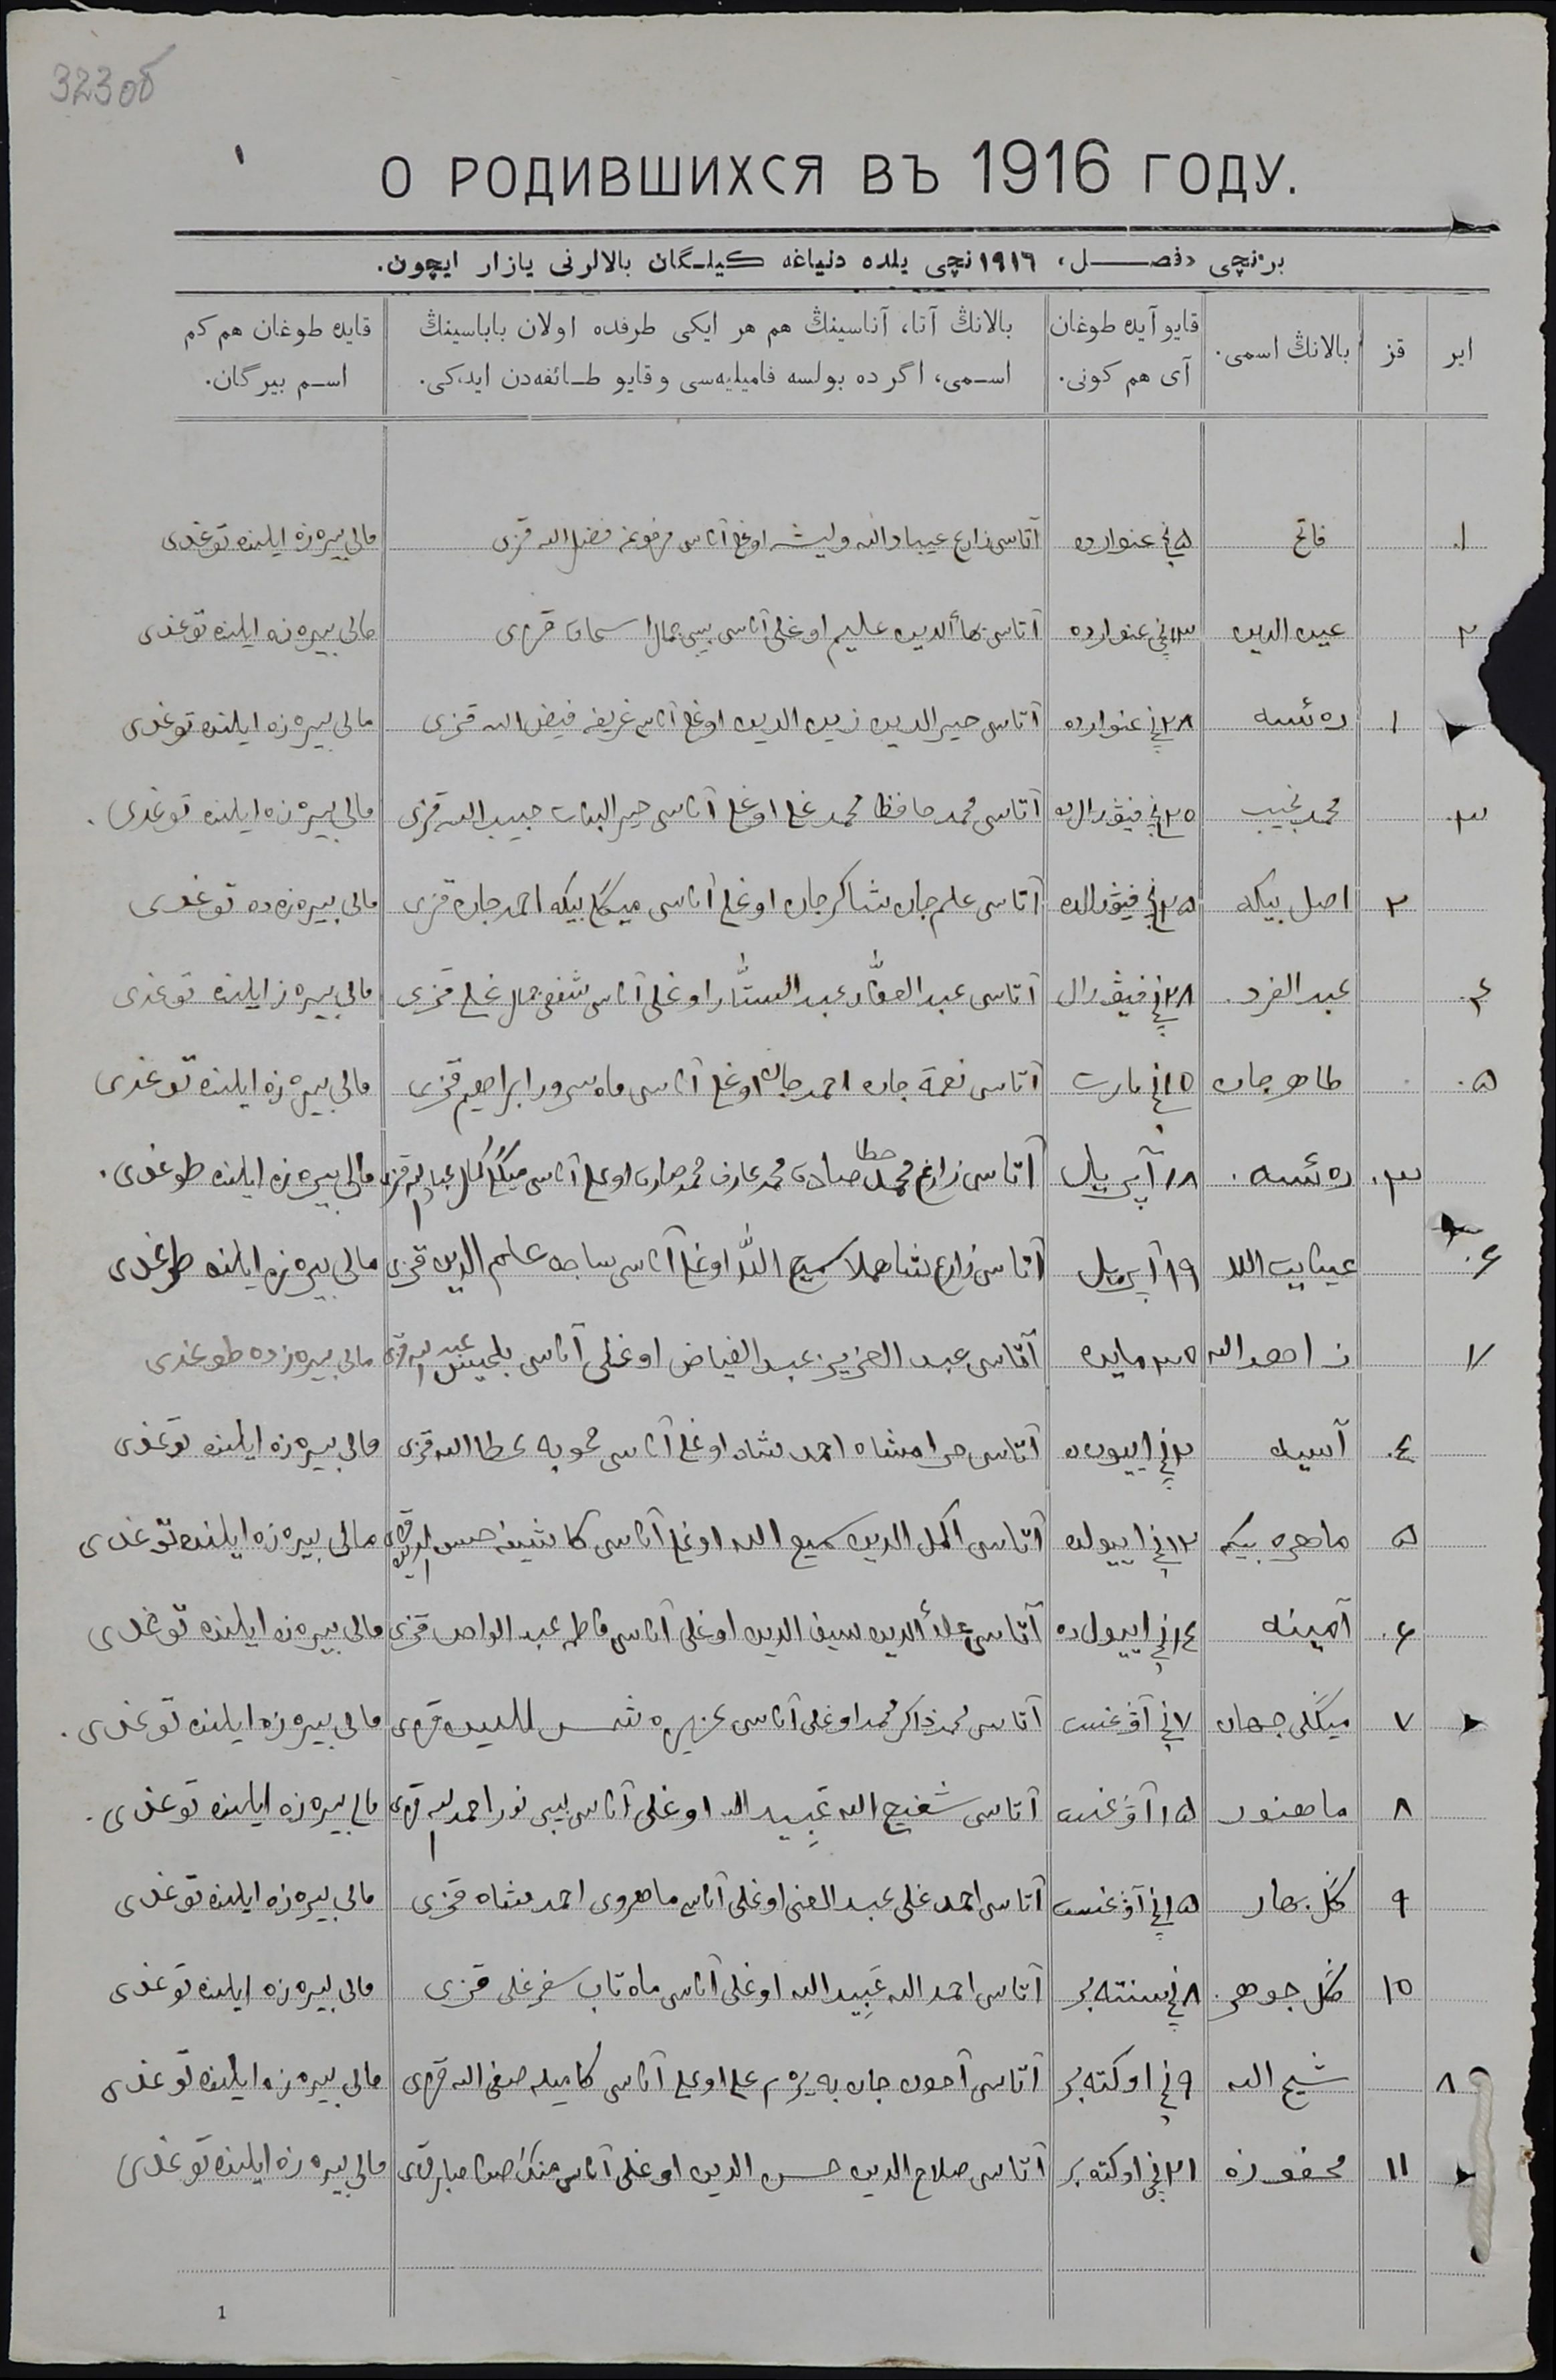 323 об
О РОДИВШИХСЯ ВЪ 1916 ГОДУ.
برنچی «فصل» ١٩١٦نچی یلده دنیاغه کیلگان بالالرنی یازار ایچون.
ایر قز بالانڭ اسمی. قایو آیده طوغان آی هم کونی. بالانڭ آتا، آناسینڭ هم هر ایکی طرفده اولان باباسینڭ اسمی، اگر ده بولسه فامیلیه‌سی و قایو طائفه‌دن ایدکی. قایده طوغان هم کم اسم بیرگان.
١ فاتح ٥نچی غنوارده آتاسی زارع عباد الله اوغلی آناسی فضل الله قزی مالی بیره‌زه ایلنده توغدی
٢ عین الدین ١٣نچی غنوارده آتاسی بهاء الدین علیم اوغلی آناسی بیبی جمال اسحاق قزی مالی بیره‌زه ایلنده توغدی
١ ره‌ئسه ٢٨نچی غنوارده آتاسی خیر الدین زین الدین اوغلی آناسی غریفه فیض الله قزی مالی بیره‌زه ایلنده توغدی
٣ محمد نجیب ٢٥نچی فیۋرالده آتاسی محمد حافظ محمد غلی اوغلی آناسی خیر البنات حبیب الله قزی مالی بیره‌زه ایلنده توغدی.
٢ اصل بیکه ٢٥نچی فیۋرالده آتاسی علم جان شاکر جان اوغلی آناسی میڭلی بیکه احمد جان قزی مالی بیره‌زه‌ده توغدی
٤ عبد الفرد. ٢٨نچی فیۋرال آتاسی عبد الغفّار عبد الستّار اوغلی آناسی جمال غلی قزی مالی بیره‌ز ایلنده توغدی
٥ طاهر جان ١٥نچی مارت آتاسی نعمة جان احمد جان اوغلی آناسی ماه سرور ابراهیم قزی مالی بیره‌زه ایلنده توغدی
٣ ره‌ئسه. ١٨ آپریل آتاسی زارع محمد خطا صادق محمد عارف محمد صادق اوغلی آناسی مالی بیره‌زه ایلنده طوغدی.
٦ عنایت الله ١٩ آپریل آتاسی زارع سمیع الله اوغلی آناسی ساجده علم الدین قزی مالی بیره‌زه ایلنده طوغدی
٧ زاهد الله مایده آتاسی عبد العزیز عبد الفیاض اوغلی آناسی مالی بیره‌زه‌ده طوغدی
٤ آسیه ٢نچی اییونده آتاسی احمد شاه اوغلی آناسی محبوبه عطا الله قزی مالی بیره‌زه ایلنده توغدی
٥ ماهره بیکه ١٢نچی اییولده آتاسی اکمل الدین سمیع الله اوغلی آناسی کاشیفه حسن الدین قزی مالی بیره‌زه ایلنده توغدی
٦ آمینه ١٤نچی اییول ده آتاسی علاء الدین سیف الدین اوغلی آناسی فاطمه عبد الواحد قزی مالی بیره‌زه ایلنده توغدی
٧ میڭلی جهان ٧نچی آۋغست آتاسی محمد ذاکر محمد اوغلی آناسی عزیزه شمس الدین قزی مالی بیره‌زه ایلنده توغدی.
٨ ماهنور ١٥ آۋغست آتاسی شفیع الله عبید الله اوغلی آناسی بیبی نور احمد الله قزی مالی بیره‌زه ایلنده توغدی.
٩ گل بهار ١٥نچی آۋغست آتاسی احمد غلی عبد الغنی اوغلی آناسی ماهروی احمد شاه قزی مالی بیره‌زه ایلنده توغدی
١٠ گل جوهر. ٨نچی سنتەبر آتاسی احمد الله عبید الله اوغلی آناسی ماه تاب سفر غلی قزی مالی بیره‌زه ایلنده توغدی
٨ شیخ الله ٩نچی اوکتەبر آتاسی آخون جان بەیرم علی اوغلی آناسی کامیله صفی الله قزی مالی بیره‌زه ایلنده توغدی
١١ محفوزه ٢١نچی اوکتەبر آتاسی صلاح الدین حسن الدین اوغلی آناسی قزی مالی بیره‌زه ایلنده توغدی
1